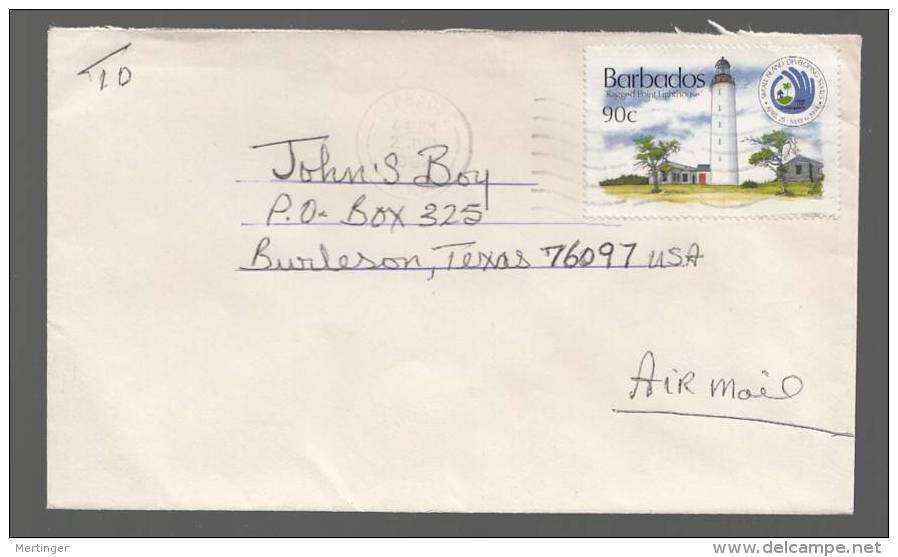 TO
Barbados
Ragged Point Lighthouse
90c
SMALL ISLAND DEVELOPING STATES
APRIL 25 - MAY 6 1994
John's Boy
P.O. Box 325
Burleson, Texas 76097 USA
AIR Mail
Mertinger
www.delcampe.net